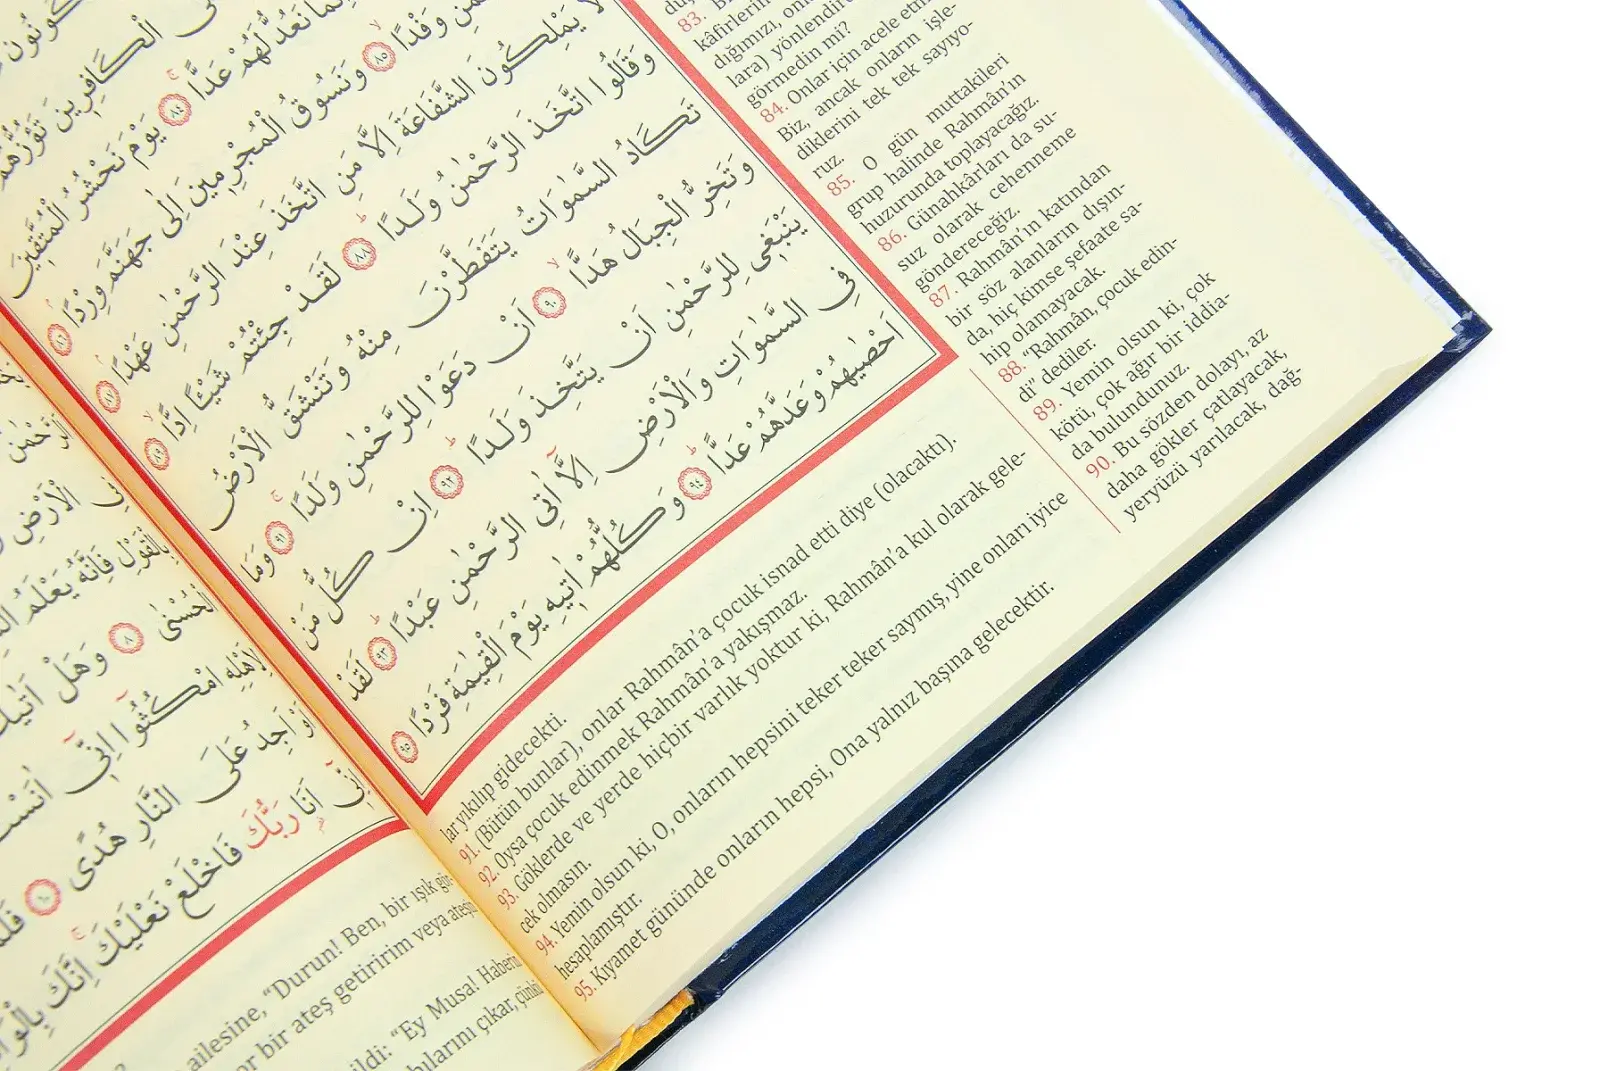 وَنَسُوقُ الْمُجْرِمِينَ اِلٰى جَهَنَّمَ وِرْدًا ﴿٨٦﴾
لَا يَمْلِكُونَ الشَّفَاعَةَ اِلَّا مَنِ اتَّخَذَ عِنْدَ الرَّحْمٰنِ عَهْدًا ﴿٨٧﴾
وَقَالُوا اتَّخَذَ الرَّحْمٰنُ وَلَدًا ﴿٨٨﴾ لَقَدْ جِئْتُمْ شَيْـًٔا اِدًّا ﴿٨٩﴾
تَكَادُ السَّمٰوَاتُ يَتَفَطَّرْنَ مِنْهُ وَتَنْشَقُّ الْاَرْضُ
وَتَخِرُّ الْجِبَالُ هَدًّا ﴿٩٠﴾ اَنْ دَعَوْا لِلرَّحْمٰنِ وَلَدًا ﴿٩١﴾ وَمَا
يَنْبَغٖي لِلرَّحْمٰنِ اَنْ يَتَّخِذَ وَلَدًا ﴿٩٢﴾ اِنْ كُلُّ مَنْ
فِي السَّمٰوَاتِ وَالْاَرْضِ اِلَّٓا اٰتِي الرَّحْمٰنِ عَبْدًا ﴿٩٣﴾ لَقَدْ
اَحْصٰيهُمْ وَعَدَّهُمْ عَدًّا ﴿٩٤﴾ وَكُلُّهُمْ اٰتٖيهِ يَوْمَ الْقِيٰمَةِ فَرْدًا ﴿٩٥﴾
83.
kâfirlerin
dığımızı, onl
lara) yönlendird
görmedin mi?
84. Onlar için acele etm
Biz, ancak onların işle-
diklerini tek tek sayıyo-
ruz.
85. O gün muttakileri
grup halinde Rahmân'ın
huzurunda toplayacağız.
86. Günahkârları da su-
suz olarak cehenneme
göndereceğiz.
87. Rahmân'ın katından
bir söz alanların dışın-
da, hiç kimse şefaate sa-
hip olamayacak.
88. “Rahmân, çocuk edin-
di” dediler.
89. Yemin olsun ki, çok
kötü, çok ağır bir iddia-
da bulundunuz.
90. Bu sözden dolayı, az
daha gökler çatlayacak,
yeryüzü yarılacak, dağ-
lar yıkılıp gidecekti.
91. (Bütün bunlar), onlar Rahmân'a çocuk isnad etti diye (olacaktı).
92. Oysa çocuk edinmek Rahmân'a yakışmaz.
93. Göklerde ve yerde hiçbir varlık yoktur ki, Rahmân'a kul olarak gele-
cek olmasın.
94. Yemin olsun ki, O, onların hepsini teker teker saymış, yine onları iyice
hesaplamıştır.
95. Kıyamet gününde onların hepsi, Ona yalnız başına gelecektir.
الْحُسْنٰى ﴿٨﴾ وَهَلْ اَتٰيكَ
لِاَهْلِهِ امْكُثُٓوا اِنّٖٓي اٰنَسْتُ
اَوْ اَجِدُ عَلَى النَّارِ هُدًى ﴿١٠﴾
اِنّٖٓي اَنَا رَبُّكَ فَاخْلَعْ نَعْلَيْكَ اِنَّكَ بِالْوَا
ailesine, “Durun! Ben, bir ışık gör-
or bir ateş getiririm veya ateşin
ildi: “Ey Musa! Haberin
bılarını çıkar, çünkü